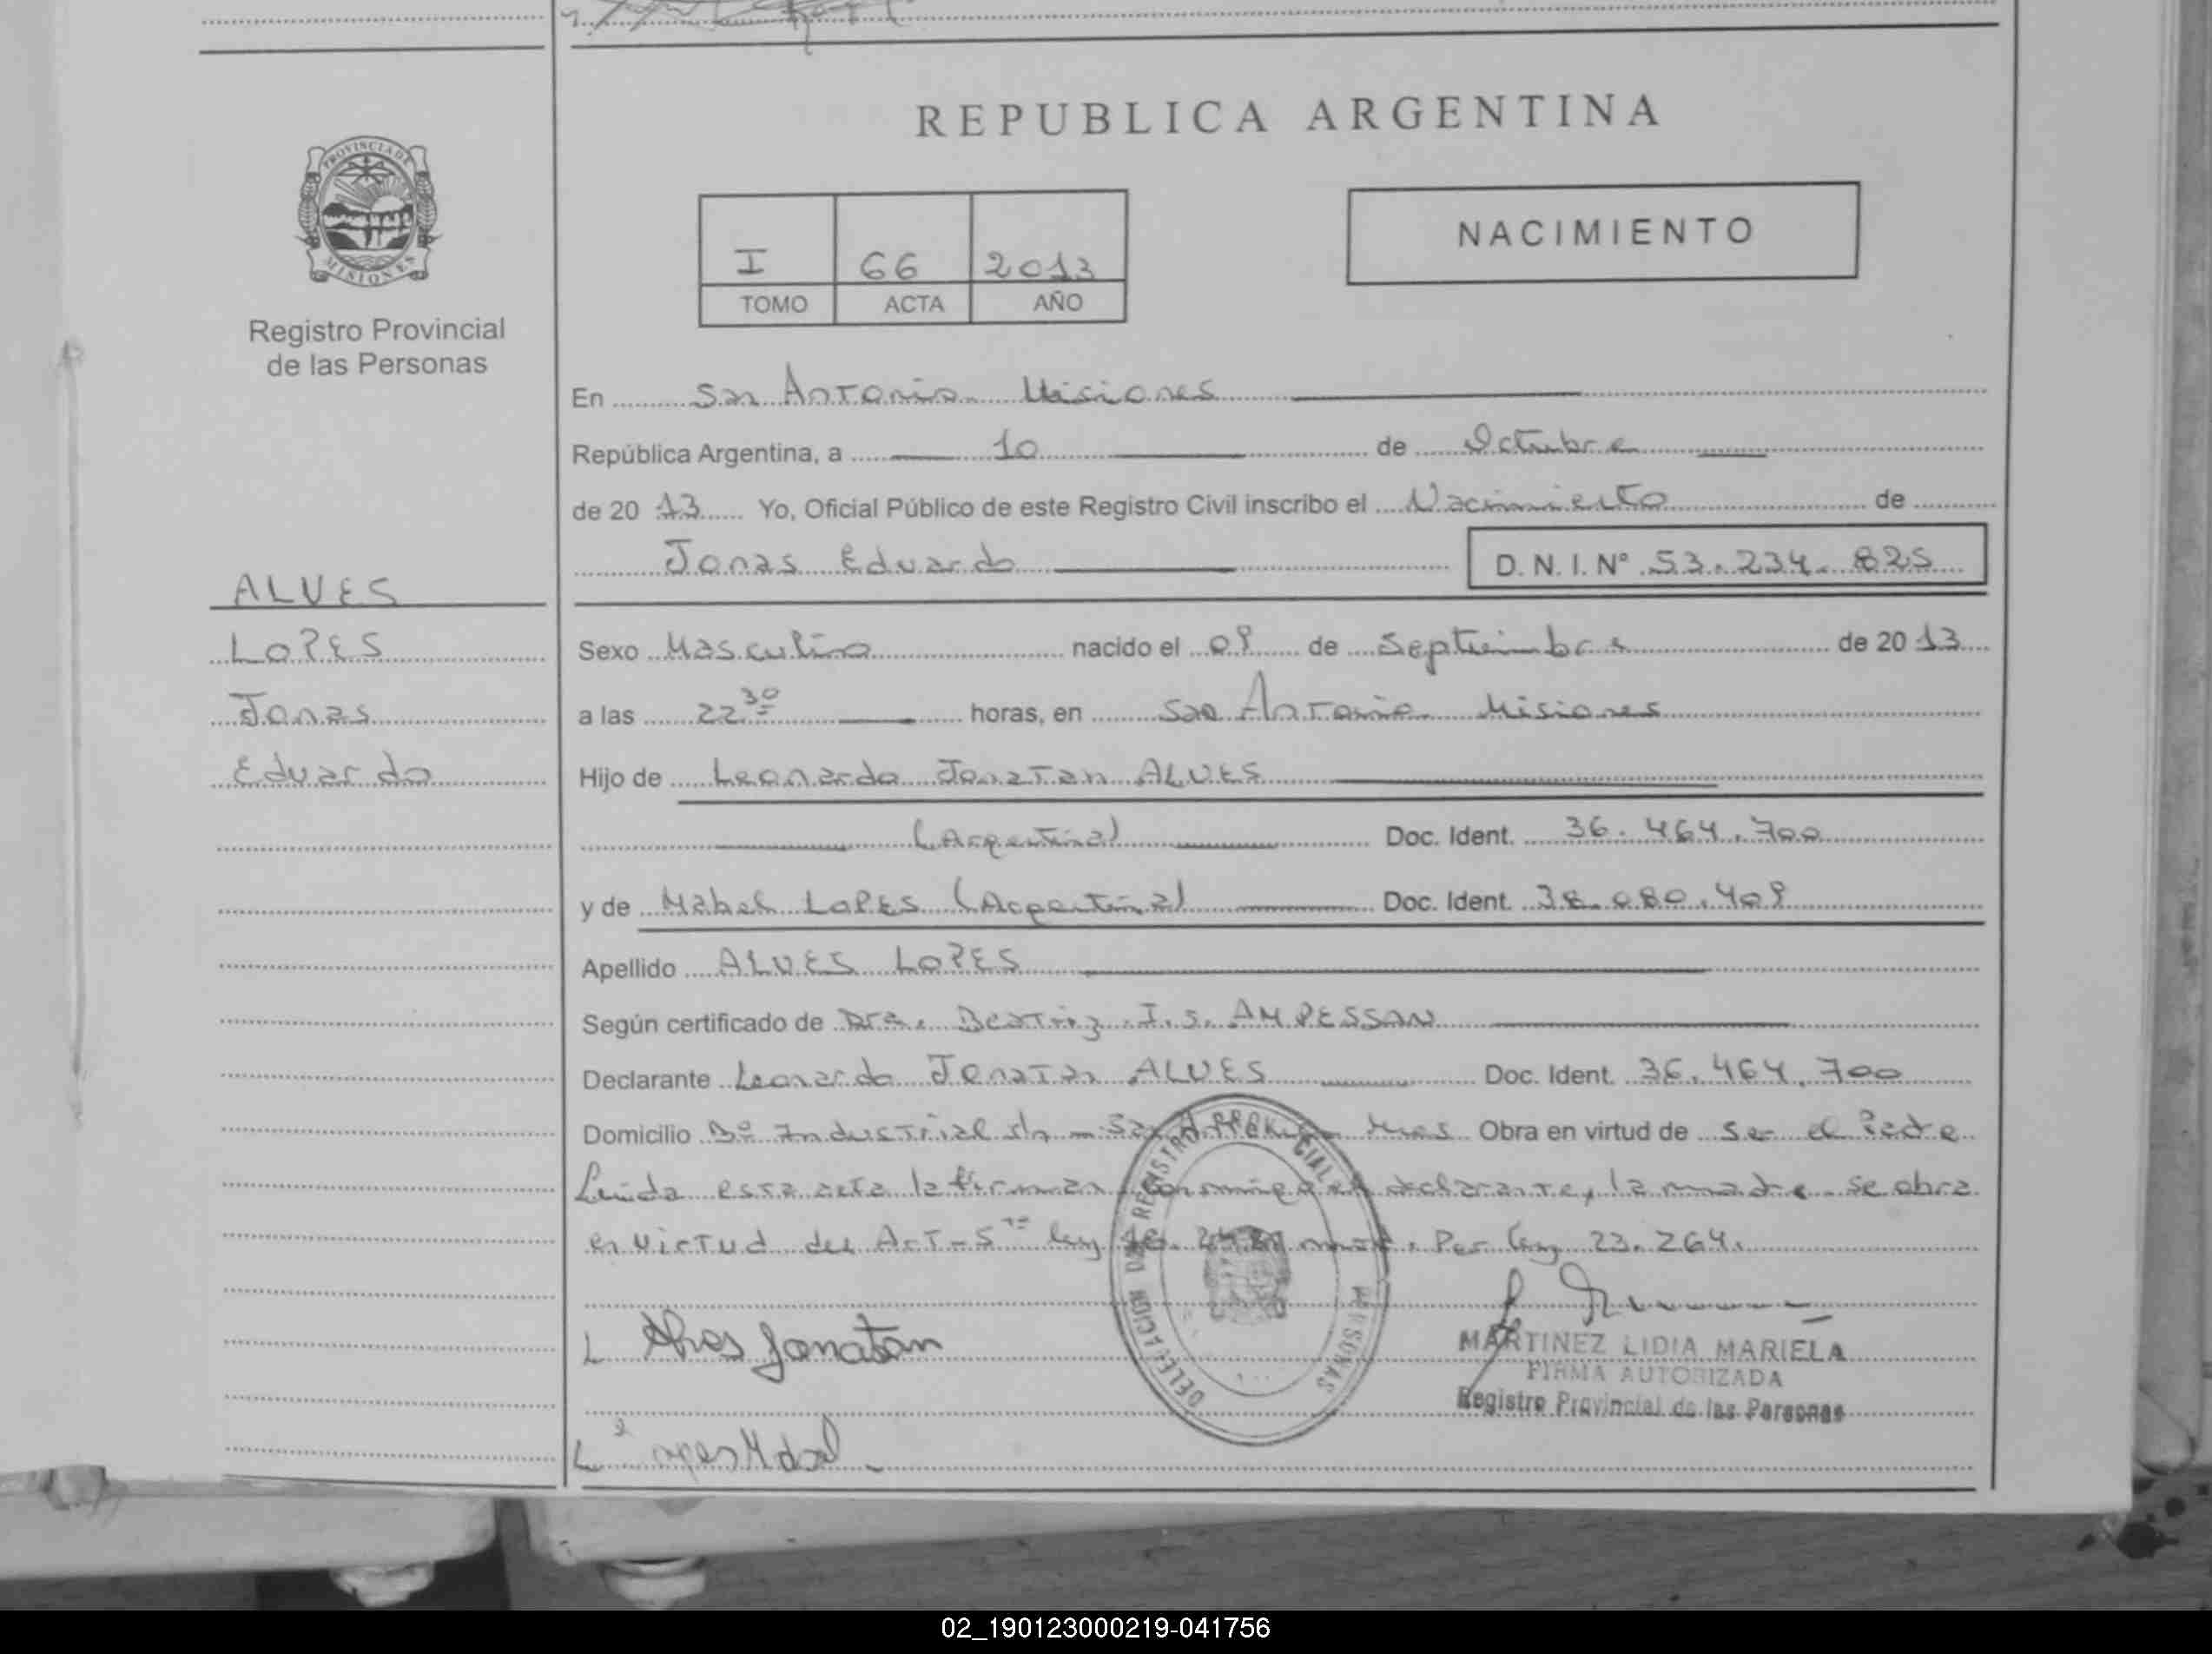 REPUBLICA ARGENTINA
PROVINCIA DE
MISIONES
Registro Provincial
de las Personas
I 66 2013
TOMO ACTA AÑO
NACIMIENTO
En San Antonio Misiones
República Argentina, a 10 de Octubre
de 20 13 Yo, Oficial Público de este Registro Civil inscribo el Nacimiento de
Jonas Eduardo D. N. I. Nº 53.234.825
ALVES
LOPES
Jonas
Eduardo
Sexo Masculino nacido el 09 de Septiembre de 20 13
a las 22 30 horas, en San Antonio Misiones
Hijo de Leonardo Jonatan ALVES
(Argentina) Doc. Ident. 36.464.700
y de Mabel LOPES (Argentina) Doc. Ident. 38.080.409
Apellido ALVES LOPES
Según certificado de Dra. Beatriz I. S. AMPESSAN
Declarante Leonardo Jonatan ALVES Doc. Ident. 36.464.700
Domicilio Bº Industrial s/n - San Antonio Mnes Obra en virtud de ser el Padre
Leida esta acta la firman conmigo el declarante, la madre se obra
en virtud del Art-5to ley 18.248 Por ley 23.264.
DELEGACION DE REGISTRO PROVINCIAL PERSONAS
L Alves Jonatan
MARTINEZ LIDIA MARIELA
FIRMA AUTORIZADA
Registro Provincial de las Personas
02_190123000219-041756